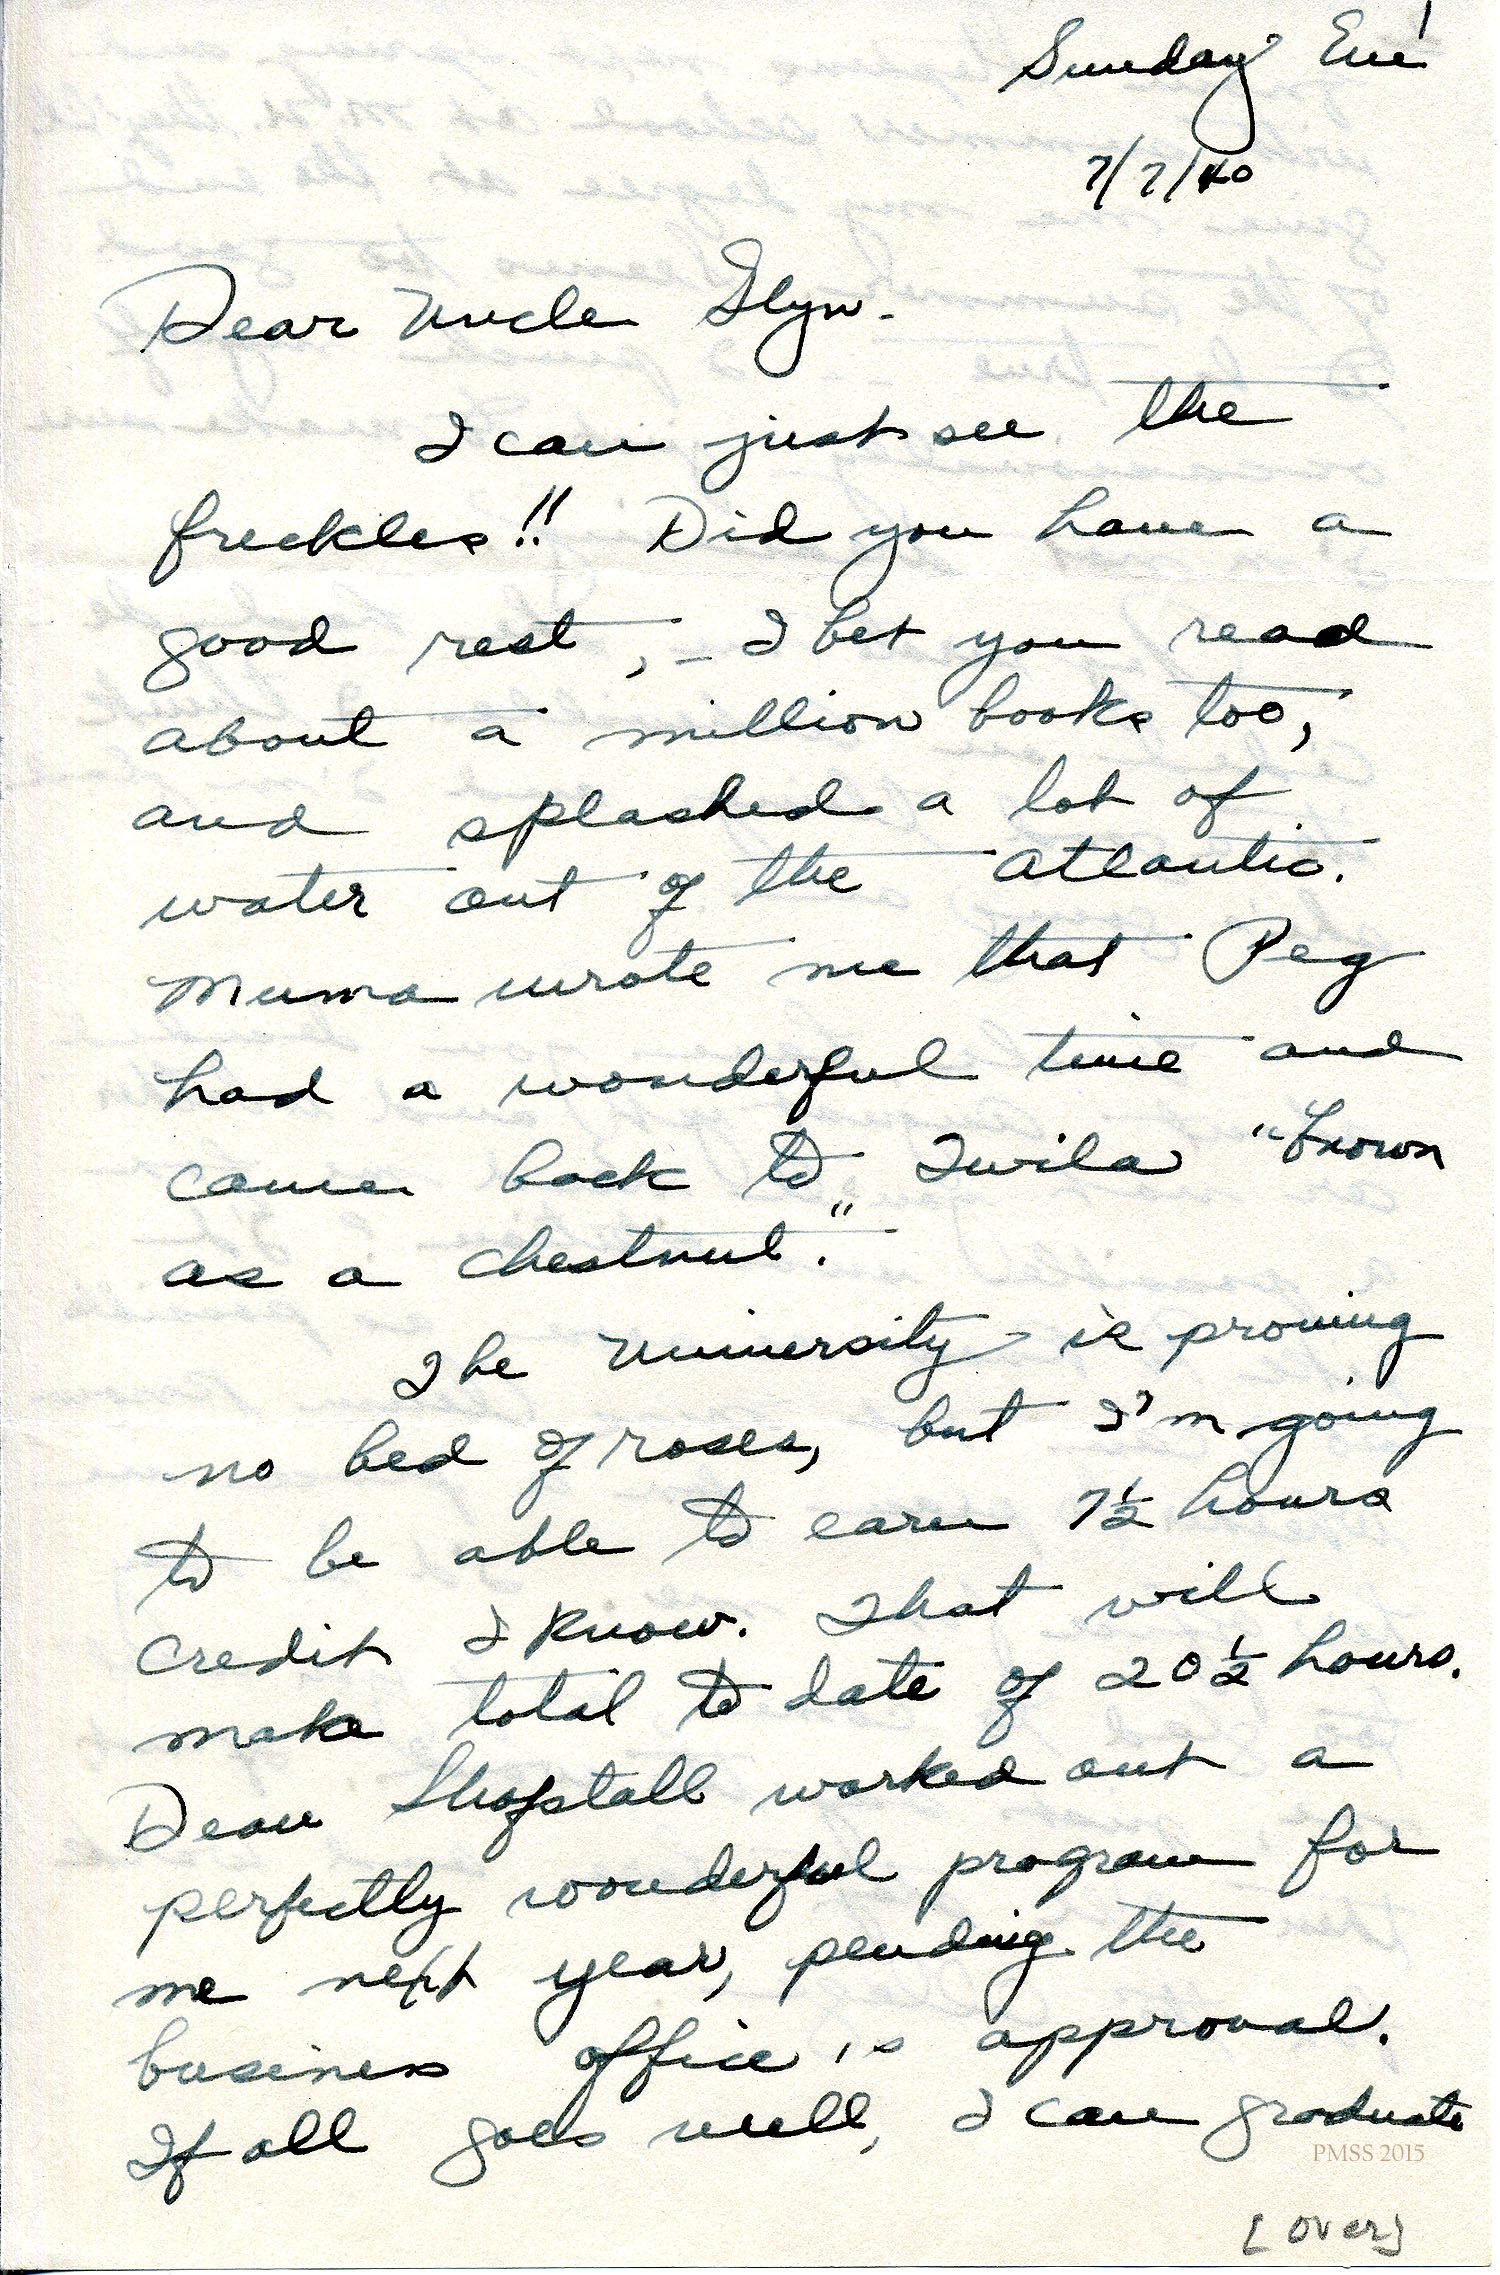 Sunday Eve'
7/7/40
Dear Uncle Glyn.
I can just see the
freckles!! Did you have a
good rest, – I bet you read
about a million books too,
and splashed a lot of
water out of the Atlantic.
Muma wrote me that Peg
had a wonderful time and
came back to Twila "brown
as a chestnut."
The University is proving
no bed of roses, but I'm going
to be able to earn 7½ hours
credit I know. That will
make total to date of 20½ hours.
Dean Shofstall worked out a
perfectly wonderful program for
me next year, pending the
business office's approval.
If all goes well, I can graduate
PMSS 2015
[over]